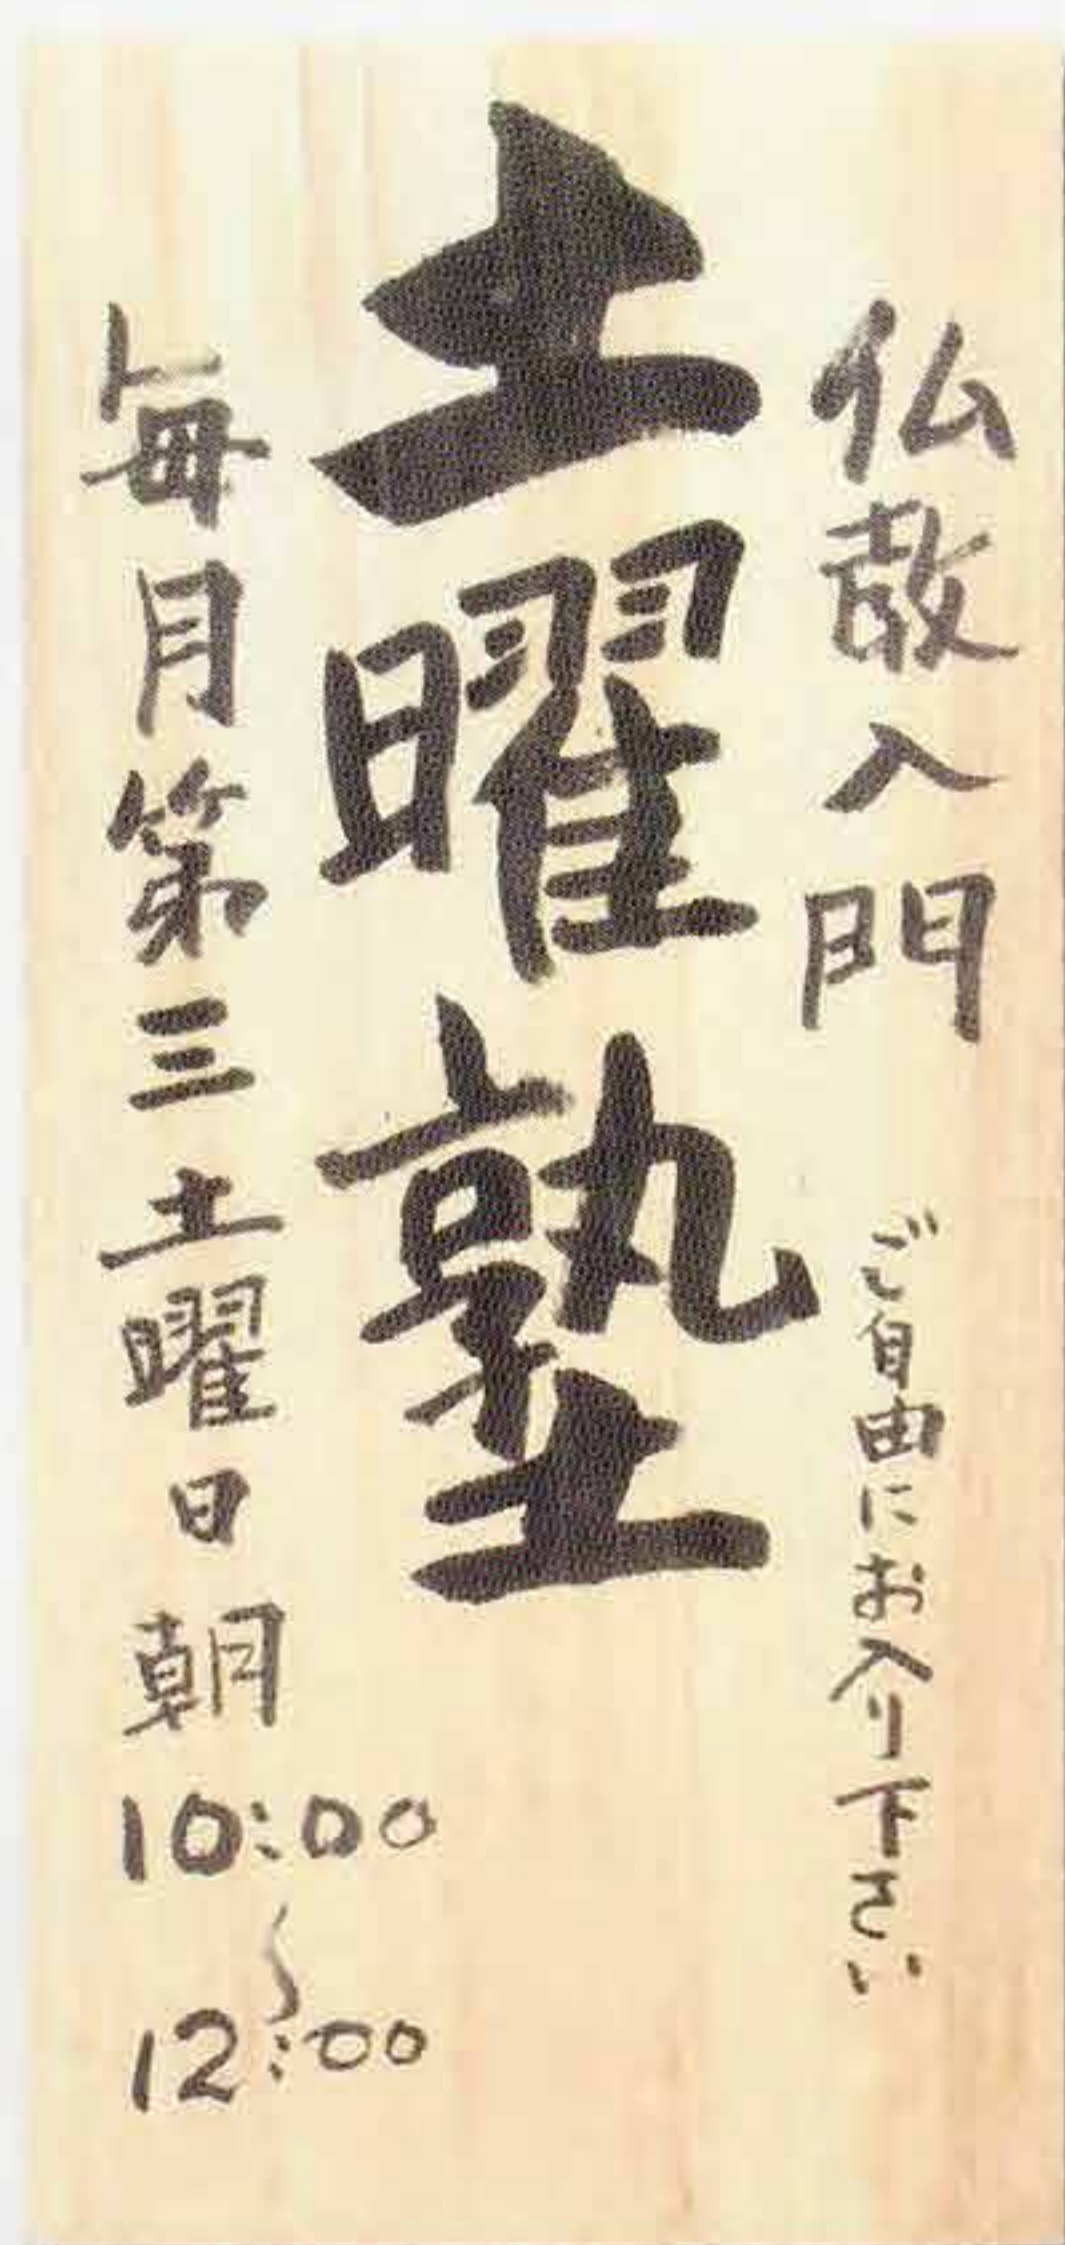 仏教入門 ご自由にお入り下さい
土曜塾
毎月第三土曜日朝
10:00
〜
12:00